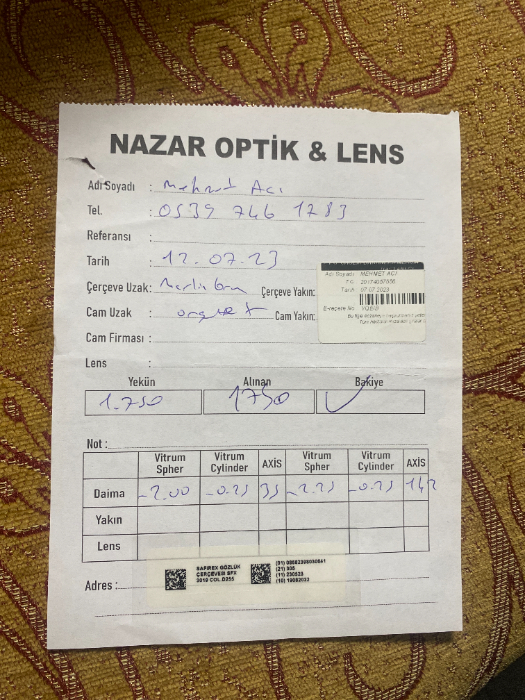 NAZAR OPTİK & LENS
Adı Soyadı : Mehmet Acı
Tel. : 0539 746 1783
Referansı :
Tarih : 12.07.23
Çerçeve Uzak: Çerçeve Yakın:
Cam Uzak : Cam Yakın:
Cam Firması :
Lens :
Adı Soyadı: MEHMET ACI
Tarih: 07.07.2023
E-reçete No:
Yekün Alınan Bakiye
1.750 1750
Not :
Vitrum Spher Vitrum Cylinder AXİS Vitrum Spher Vitrum Cylinder AXİS
Daima -2.00 -0.25 35 -2.25 -0.25 142
Yakın
Lens
SAFIREX GÖZLÜK
ÇERÇEVESİ SFX
Adres :